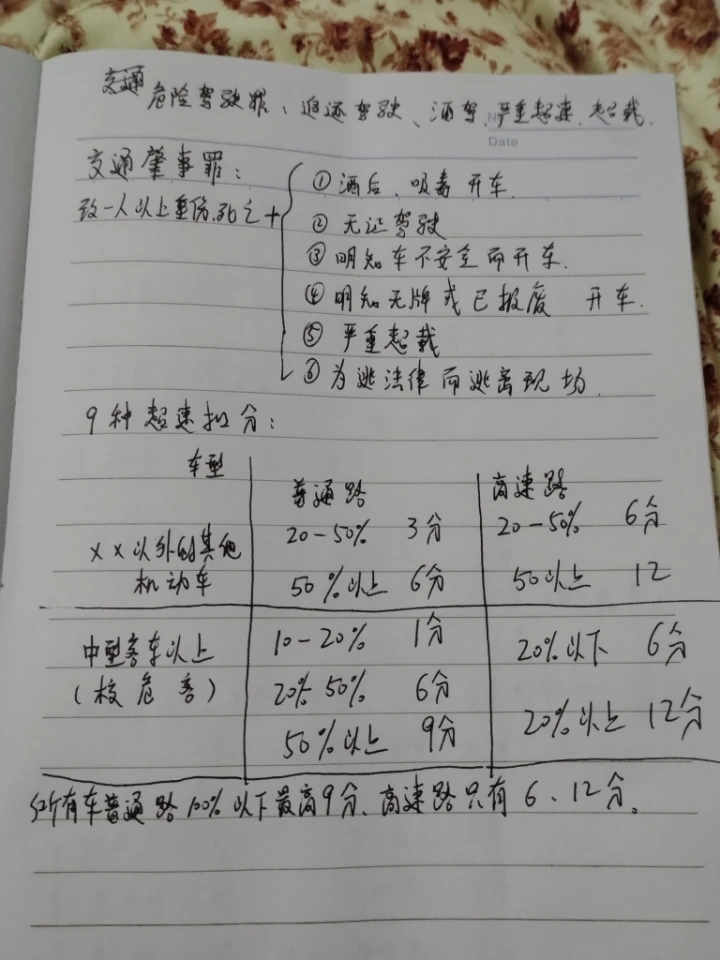 交通危险驾驶罪、追逐驾驶、酒驾、严重超速、超载.
Date
交通肇事罪:
致一人以上重伤.死亡+
①酒后、吸毒开车.
②无证驾驶
③明知车不安全而开车.
④明知无牌或已报废 开车.
⑤严重超载
⑥为逃法律而逃离现场.
9种超速扣分:
车型 普通路 高速路
××以外的其他机动车
20-50% 3分 20-50% 6分
50%以上 6分 50以上 12
中型客车以上
(校危客)
10-20% 1分 20%以下 6分
20%-50% 6分
50%以上 9分 20%以上 12分
所有车普通路100%以下最高9分、高速路只有6、12分。